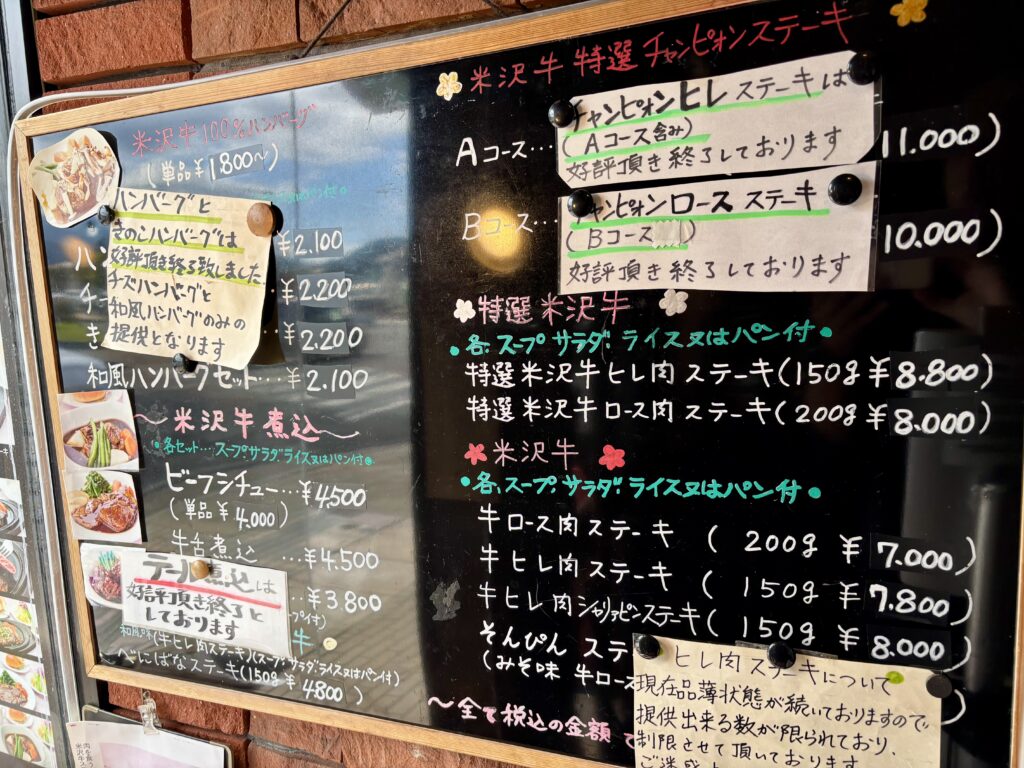 米沢牛100%ハンバーグ
(単品¥1800~)
ハンバーグと
きのこハンバーグは
好評頂き終了致しました
チーズハンバーグと
和風ハンバーグのみの
提供となります
¥2.100
¥2.200
¥2.200
和風ハンバーグセット…¥2.100
~米沢牛煮込~
・各セット…スープ.サラダ.ライス又はパン付・
ビーフシチュー…¥4,500
(単品¥4.000)
牛舌煮込…¥4.500
テール煮込は
好評頂き終了と
しております
…¥3.800
(牛ヒレ肉ステーキ)(スープ.サラダ.ライス又はパン付)
べにばなステーキ(150g¥4800)
米沢牛特選チャンピオンステーキ
Aコース…
11.000)
チャンピオンヒレステーキは
(Aコース含み)
好評頂き終了しております
Bコース…
10.000)
チャンピオンロースステーキ
(Bコース)
好評頂き終了しております
特選米沢牛
・各.スープ サラダ.ライス又はパン付・
特選米沢牛ヒレ肉ステーキ(150g¥8.800)
特選米沢牛ロース肉ステーキ(200g¥8.000)
米沢牛
・各.スープ.サラダ.ライス又はパン付・
牛ロース肉ステーキ(200g¥7.000)
牛ヒレ肉ステーキ(150g¥7.800)
牛ヒレ肉シャリアピンステーキ(150g¥8.000)
そんぴんステ
(みそ味 牛ロース
~全て税込の金額
ヒレ肉ステーキについて
現在品薄状態が続いておりますので
提供出来る数が限られており、
制限させて頂いております